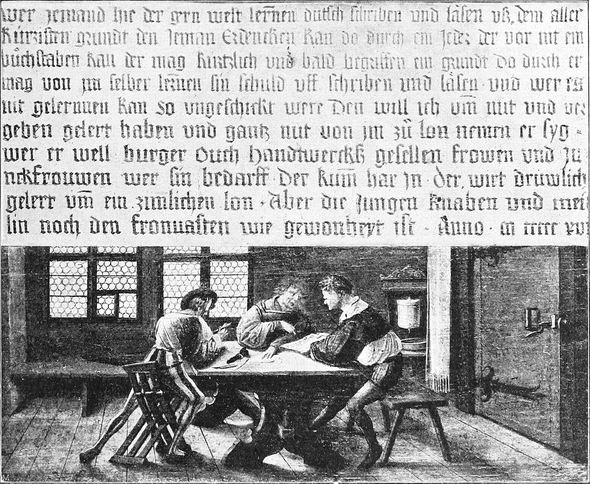 wer jemand hie der gern welt lernen dütsch schriben und läsen uß dem aller
kürzisten grundt den jeman erdencken kan do durch ein jeder der vor nit ein
bůchstaben kan der mag kürtzlich und bald begriffen ein grundt do durch er
mag von jm selber lernen sin schuld uff schriben und läsen · und wer es
nit gelernnen kan so ungeschickt were den will ich um nüt und ver
geben gelert haben und gantz nüt von jm zů lon nemen er syg =
wer er well burger ouch handtwerckß gesellen frowen und Ju
nckfrouwen wer sin bedarff der kumm har jn · der wirt drüwlich
gelert um ein zimlichen lon · Aber die jungen knaben und meit
lin noch den fronuasten wie gewonheyt ist · Anno · m ccccc xvi